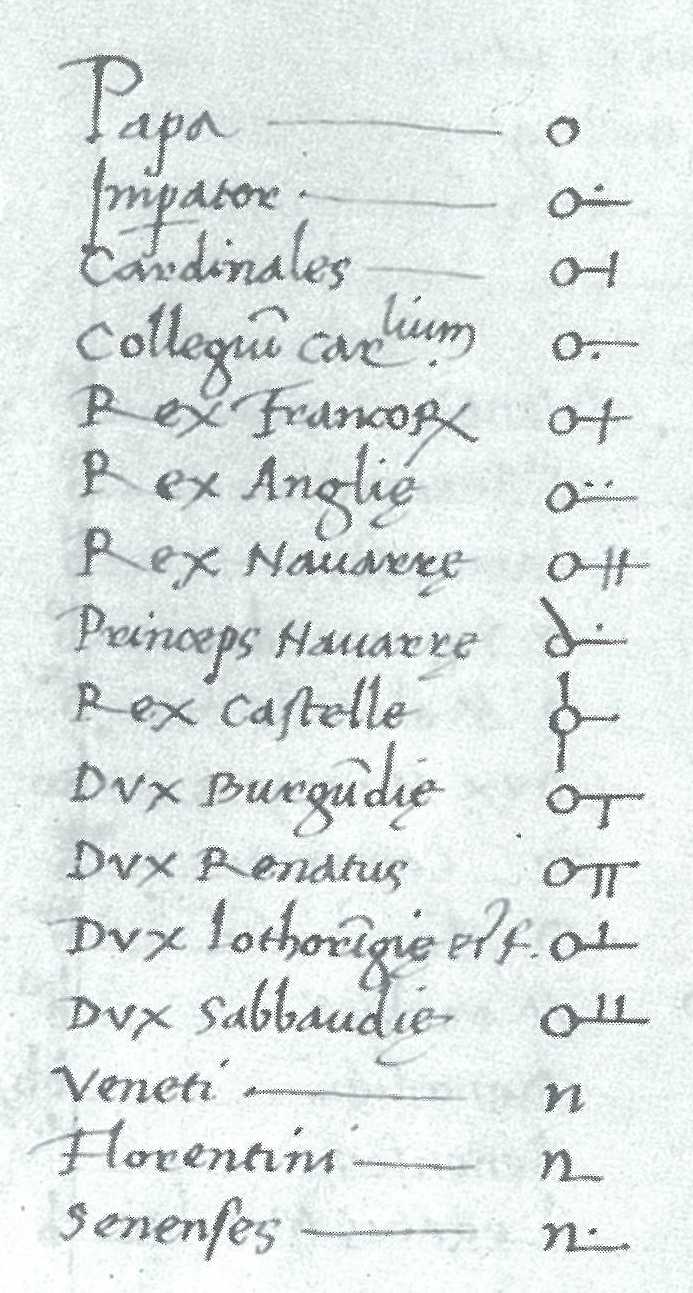 Papa
Imꝑator
Cardinales
Collegiū carlium
Rex Francoꝝ
Rex Anglię
Rex Nauarrę
Princeps Nauarrę
Rex Castellę
Dvx Burgūdię
Dvx Renatus
Dvx lothorīgię
Dvx Sabbaudię
Veneti n
Florentini n
Senenses n